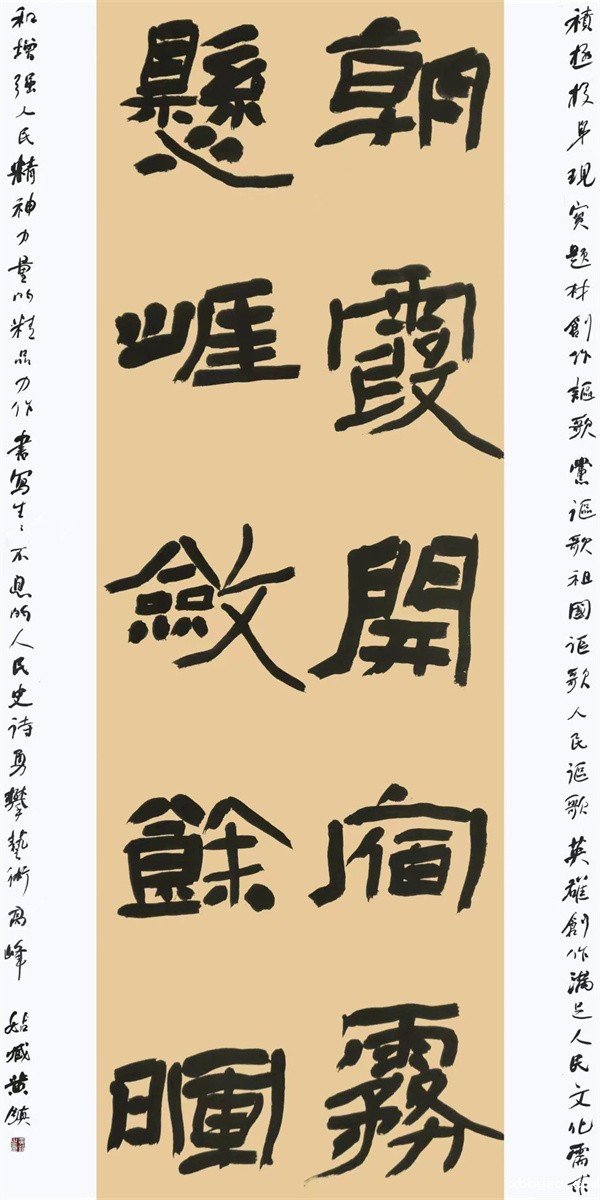 朝霞開宿霧
懸崕斂餘暉
積極投身現實題材創作謳歌黨謳歌祖國謳歌人民謳歌英雄創作滿足人民文化需求
和增强人民精神力量的精品力作書寫生〻不息的人民史诗勇攀藝術高峰 姑臧黄鎮